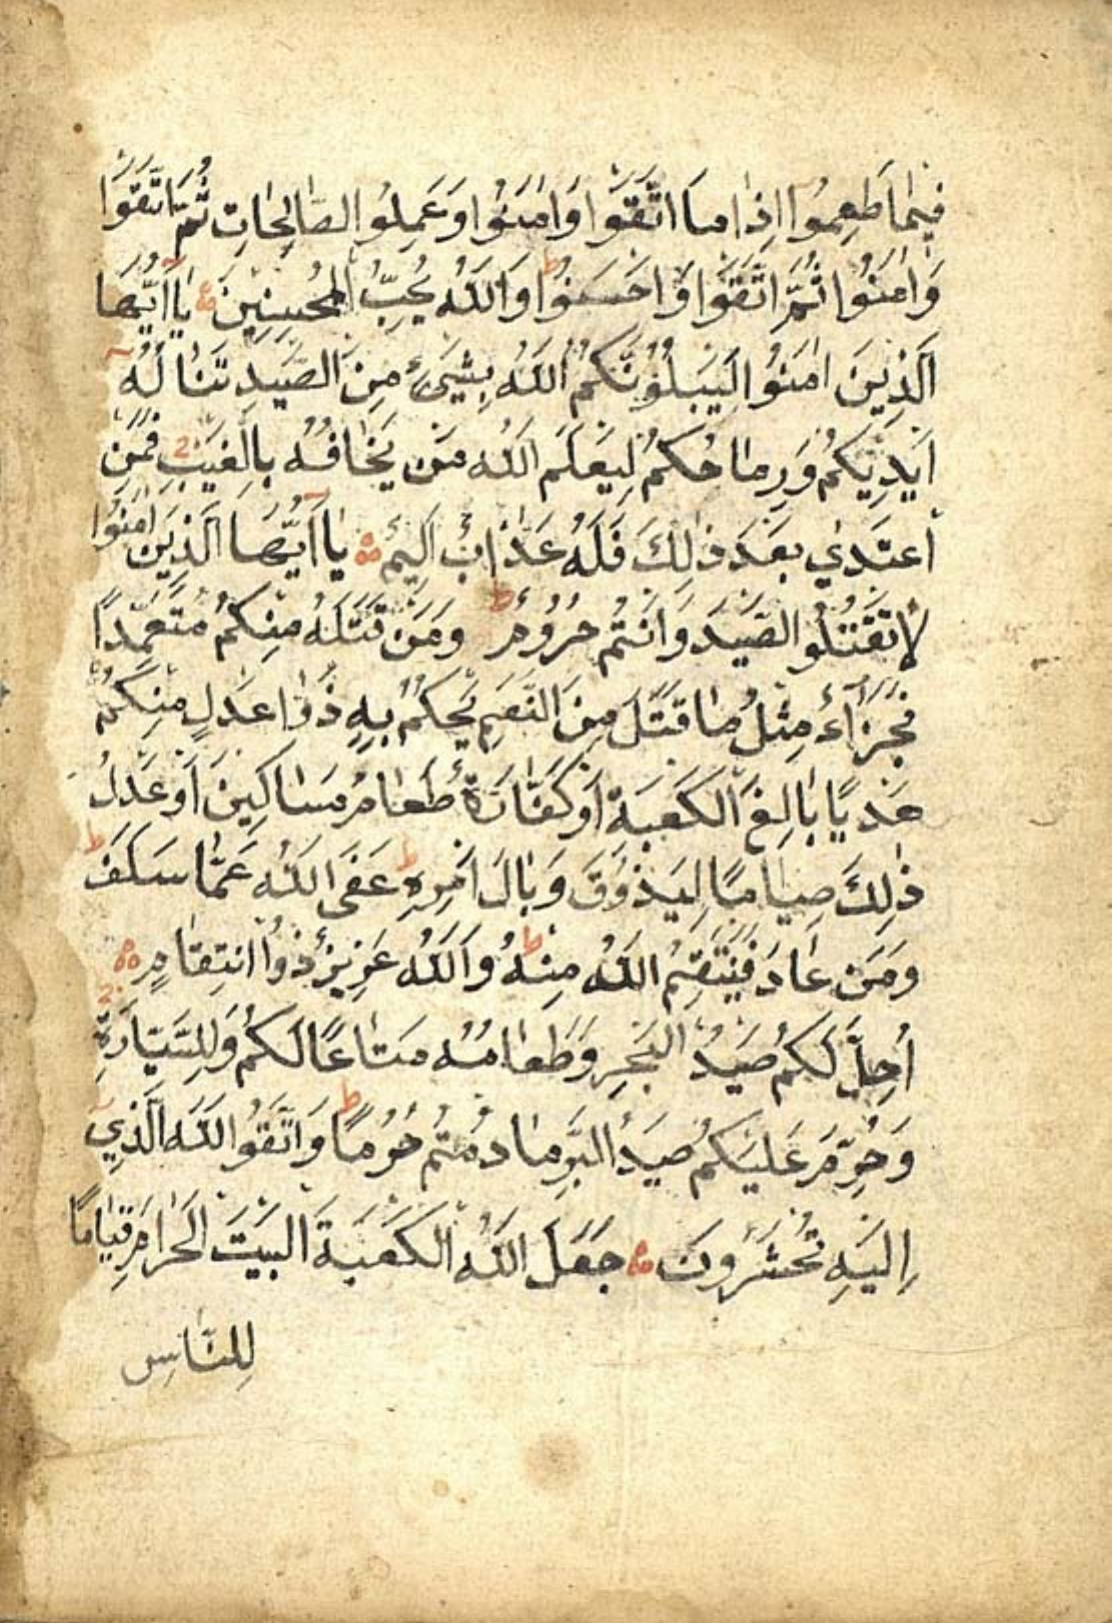 فِيمَا طَعِمُوا اِذَا مَا اتَّقَوْا وَاٰمَنُوا وَعَمِلُوا الصَّالِحَاتِ ثُمَّ اتَّقَوْا
وَاٰمَنُوا ثُمَّ اتَّقَوْا وَاَحْسَنُوا ط وَاللّٰهُ يُحِبُّ الْمُحْسِنِينَ يَا اَيُّهَا
الَّذِينَ اٰمَنُوا لَيَبْلُوَنَّكُمُ اللّٰهُ بِشَيْءٍ مِنَ الصَّيْدِ تَنَالُهُ
اَيْدِيكُمْ وَرِمَاحُكُمْ لِيَعْلَمَ اللّٰهُ مَنْ يَخَافُهُ بِالْغَيْبِ فَمَنِ
اعْتَدٰى بَعْدَ ذٰلِكَ فَلَهُ عَذَابٌ اَلِيمٌ يَا اَيُّهَا الَّذِينَ اٰمَنُوا
لَا تَقْتُلُوا الصَّيْدَ وَاَنْتُمْ حُرُومٌ ط وَمَنْ قَتَلَهُ مِنْكُمْ مُتَعَمِّدًا
فَجَزَآءٌ مِثْلُ مَا قَتَلَ مِنَ النَّعَمِ يَحْكُمُ بِهِ ذَوَا عَدْلٍ مِنْكُمْ
هَدْيًا بَالِغَ الْكَعْبَةِ اَوْ كَفَّارَةٌ طَعَامُ مَسَاكِينَ اَوْ عَدْلُ
ذٰلِكَ صِيَامًا لِيَذُوقَ وَبَالَ اَمْرِهِ ط عَفَى اللّٰهُ عَمَّا سَلَفَ ط
وَمَنْ عَادَ فَيَنْتَقِمُ اللّٰهُ مِنْهُ ط وَاللّٰهُ عَزِيزٌ ذُوا انْتِقَامٍ
اُحِلَّ لَكُمْ صَيْدُ الْبَحْرِ وَطَعَامُهُ مَتَاعًا لَكُمْ وَلِلسَّيَّارَةِ
وَحُرِّمَ عَلَيْكُمْ صَيْدُ الْبَرِّ مَا دُمْتُمْ حُرُمًا ط وَاتَّقُوا اللّٰهَ الَّذِي
اِلَيْهِ تُحْشَرُونَ جَعَلَ اللّٰهُ الْكَعْبَةَ الْبَيْتَ الْحَرَامَ قِيَامًا
لِلنَّاسِ